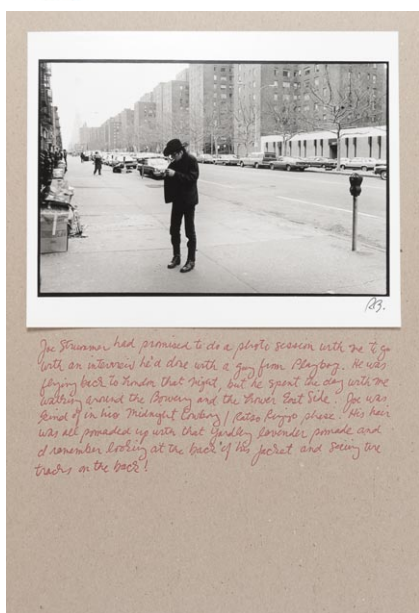 RB.
Joe Strummer had promised to do a photo session with me to go
with an interview he'd done with a guy from Playboy. He was
flying back to London that night, but he spent the day with me
walking around the Bowery and the Lower East Side. Joe was
kind of in his Midnight Cowboy / Ratso Rizzo phase. His hair
was all pomaded up with that Yardley lavender pomade and
I remember looking at the back of his jacket and seeing tire
tracks on the back!